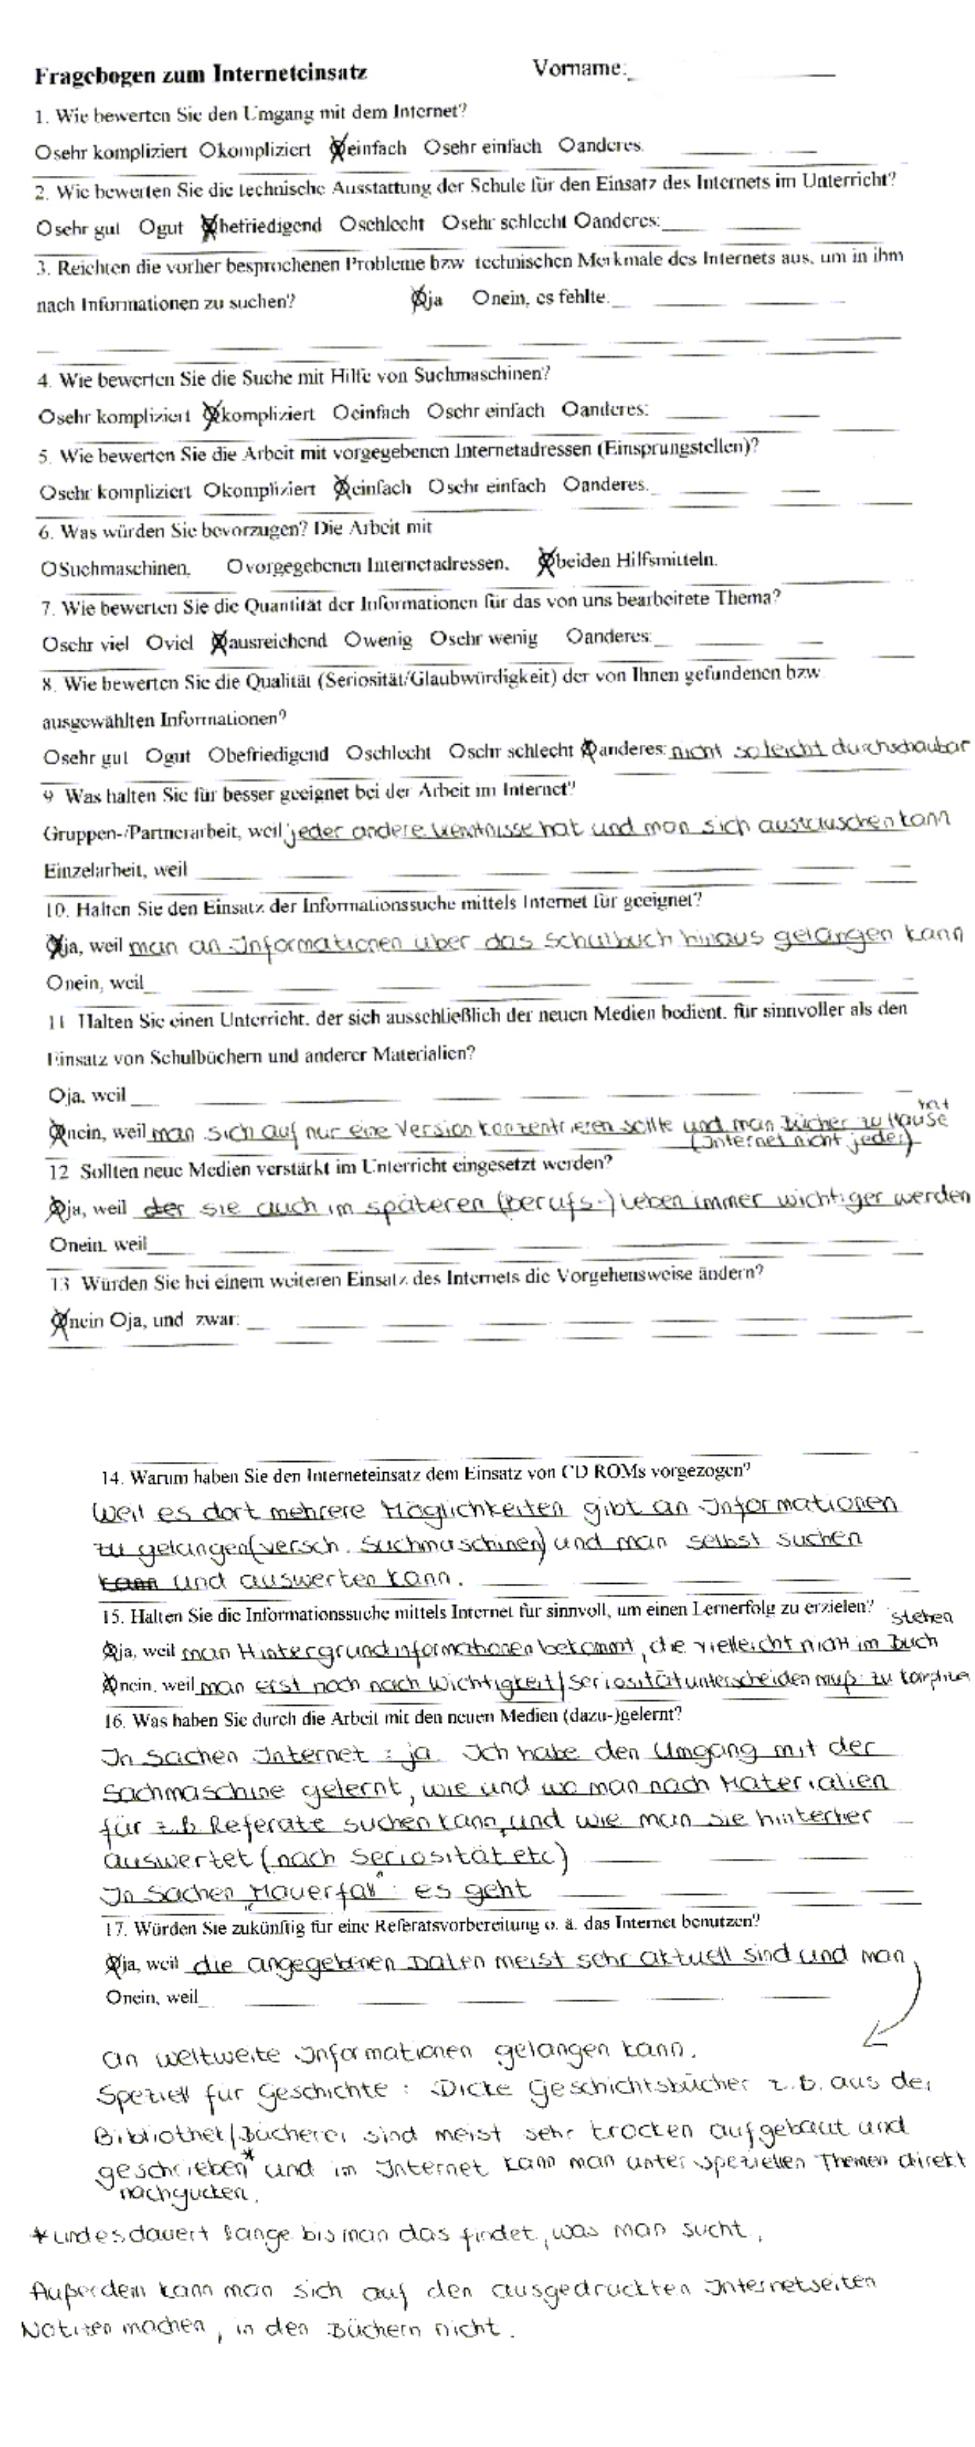 Fragebogen zum Interneteinsatz Vorname:
1. Wie bewerten Sie den Umgang mit dem Internet?
Osehr kompliziert Okompliziert Oeinfach Osehr einfach Oanderes:
2. Wie bewerten Sie die technische Ausstattung der Schule für den Einsatz des Internets im Unterricht?
Osehr gut Ogut Obefriedigend Oschlecht Osehr schlecht Oanderes:
3. Reichten die vorher besprochenen Probleme bzw technischen Merkmale des Internets aus, um in ihm
nach Informationen zu suchen? Oja Onein, es fehlte:
4. Wie bewerten Sie die Suche mit Hilfe von Suchmaschinen?
Osehr kompliziert Okompliziert Oeinfach Osehr einfach Oanderes:
5. Wie bewerten Sie die Arbeit mit vorgegebenen Internetadressen (Einsprungstellen)?
Osehr kompliziert Okompliziert Oeinfach Osehr einfach Oanderes:
6. Was würden Sie bevorzugen? Die Arbeit mit
OSuchmaschinen, Ovorgegebenen Internetadressen, Obeiden Hilfsmitteln.
7. Wie bewerten Sie die Quantität der Informationen für das von uns bearbeitete Thema?
Osehr viel Oviel Oausreichend Owenig Osehr wenig Oanderes:
8. Wie bewerten Sie die Qualität (Seriosität/Glaubwürdigkeit) der von Ihnen gefundenen bzw.
ausgewählten Informationen?
Osehr gut Ogut Obefriedigend Oschlecht Osehr schlecht Oanderes: nicht so leicht durchschaubar
9 Was halten Sie für besser geeignet bei der Arbeit im Internet?
Gruppen-/Partnerarbeit, weil jeder andere Kenntnisse hat und man sich austauschen kann
Einzelarbeit, weil
10. Halten Sie den Einsatz der Informationssuche mittels Internet für geeignet?
Oja, weil man an Informationen über das Schulbuch hinaus gelangen kann
Onein, weil
11 Halten Sie einen Unterricht, der sich ausschließlich der neuen Medien bedient, für sinnvoller als den
Einsatz von Schulbüchern und anderer Materialien?
Oja, weil
Onein, weil man sich auf nur eine Version konzentrieren sollte und man Bücher zu Hause hat
(Internet nicht jeder)
12 Sollten neue Medien verstärkt im Unterricht eingesetzt werden?
Oja, weil der sie auch im späteren (Berufs-) Leben immer wichtiger werden
Onein, weil
13 Würden Sie bei einem weiteren Einsatz des Internets die Vorgehensweise ändern?
Onein Oja, und zwar:
14. Warum haben Sie den Interneteinsatz dem Einsatz von CD ROMs vorgezogen?
Weil es dort mehrere Möglichkeiten gibt an Informationen
zu gelangen (versch. Suchmaschinen) und man selbst suchen
kann und auswerten kann.
15. Halten Sie die Informationssuche mittels Internet für sinnvoll, um einen Lernerfolg zu erzielen?
Oja, weil man Hintergrundinformationen bekommt, die vielleicht nicht im Buch stehen
Onein, weil man erst noch nach Wichtigkeit/Seriosität unterscheiden muß: zu
16. Was haben Sie durch die Arbeit mit den neuen Medien (dazu-)gelernt?
In Sachen Internet : ja Ich habe den Umgang mit der
Sachmaschine gelernt, wie und wo man nach Materialien
für z.B. Referate suchen kann, und wie man sie hinterher
auswertet (nach Seriosität etc)
In Sachen "Mauerfall": es geht
17. Würden Sie zukünftig für eine Referatsvorbereitung o. ä. das Internet benutzen?
Oja, weil die angegebenen Daten meist sehr aktuell sind und man
Onein, weil
an weltweite Informationen gelangen kann.
Speziell für Geschichte : Dicke Geschichtsbücher z.B. aus der
Bibliothek/Bücherei sind meist sehr trocken aufgebaut und
geschrieben* und im Internet kann man unter speziellen Themen direkt
nachgucken.
* und es dauert lange bis man das findet, was man sucht.
Außerdem kann man sich auf den ausgedruckten Internetseiten
Notizen machen, in den Büchern nicht.